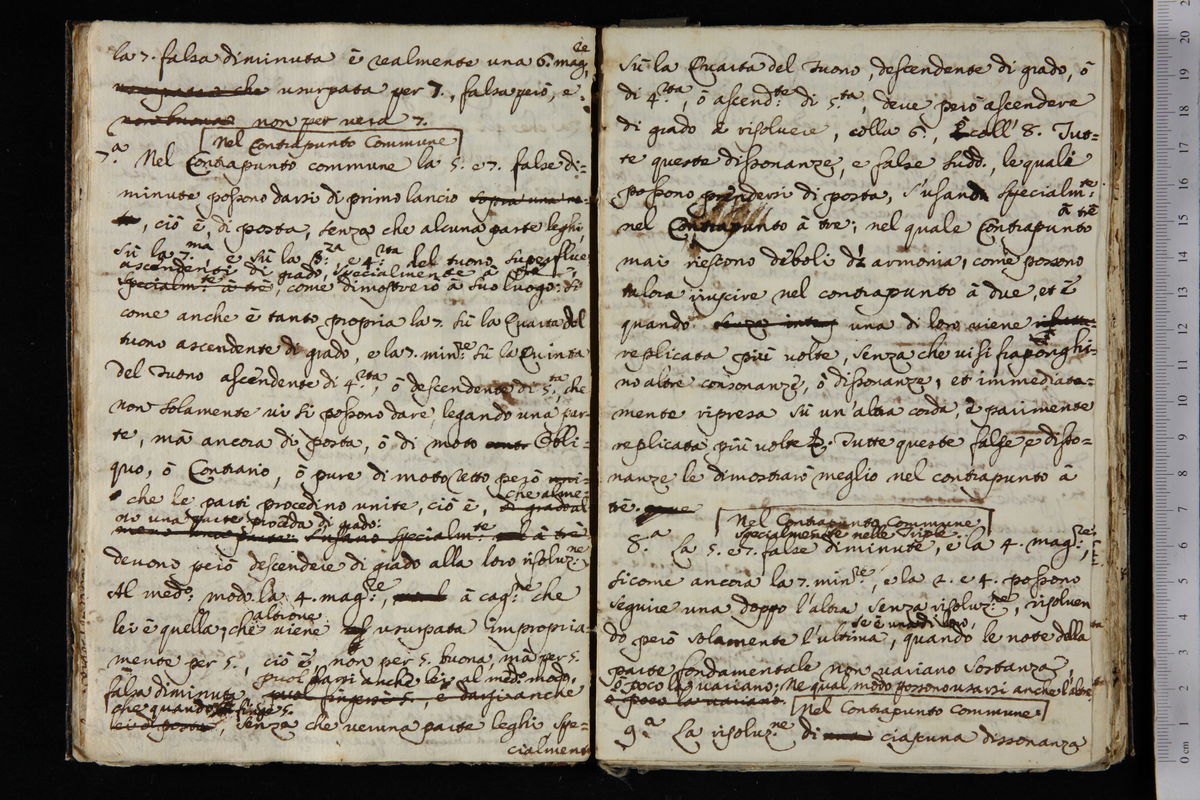 la 7. falsa diminuta è realmente una 6. mag.re
usurpata per 7., falsa però, e
non per vera 7.
Nel Contrapunto Commune
7.a Nel Contrapunto commune la 5. e 7. false di=
minute possono darsi di primo lancio
, ciò è, di posta, senza che alcuna parte leghi,
sù la 7.ma e sù la 3.za, e 4.ta del tuono, superflue
ascendenti di grado, specialmente à trè,
come dimostrerò à suo luogo: si
come anche è tanto propria la 7. sù la Quarta del
tuono ascendente di grado, e la 7. min.re sù la Quinta
del Tuono ascendente di 4.ta, ò descendente di 5.ta, che
non solamente vi si possono dare, legando una par=
te, mà ancora di posta, ò di moto Obli=
quo, ò Contrario, ò pure di moto retto però
che le parti procedino unite, ciò è, che alme=
no una parte proceda di grado:
devono però descendere di grado alla loro risoluz.ne
Al med.o mod. la 4. mag.re, à cag.ne che
lei è quella, che altrove viene usurpata impropria=
mente per 5., ciò è, non per 5. buona, mà per 5.
falsa diminuta, puol darsi anche lei al med.o modo,
che quando finge 5.
senza che veruna parte leghi spe=
cialmente
sù la Quarta del Tuono, descendente di grado, ò
di 4.ta, ò ascend.te di 5.ta, deve però ascendere
di grado e risolvere, colla 6., coll' 8. Tut=
te queste dissonanze, e false sudd.e, le quali
possono prendersi di posta, s'usano specialm.te
nel Contrapunto à tre; nel quale Contrapunto à trè
mai riescono deboli di armonia, come possono
talora riuscire nel contrapunto à due, et è
quando una di loro viene
replicata più volte, senza che vi si fraponghi=
no altre consonanze, ò dissonanze, et immediata=
mente ripresa sù un'altra corda, è parimente
replicata più volte. Tutte queste false e disso=
nanze le dimostrarò meglio nel contrapunto à
trè.
Nel Contrapunto Commune,
specialmente nelle Triple.
8.a La 5. e 7. false diminute, e la 4. mag.re,
sicome ancora la 7. min.re, e la 2. e 4. possono
seguire una doppo l'altra senza risoluz.ne, risolven
do però solamente l'ultima, se è una di loro, quando le note della
parte fondamentale non variano sostanza
ò poco la variano; Nel qual modo possono usarsi anche l'altre
Nel Contrapunto Commune.
9.a La risoluz.ne di ciascuna dissonanza